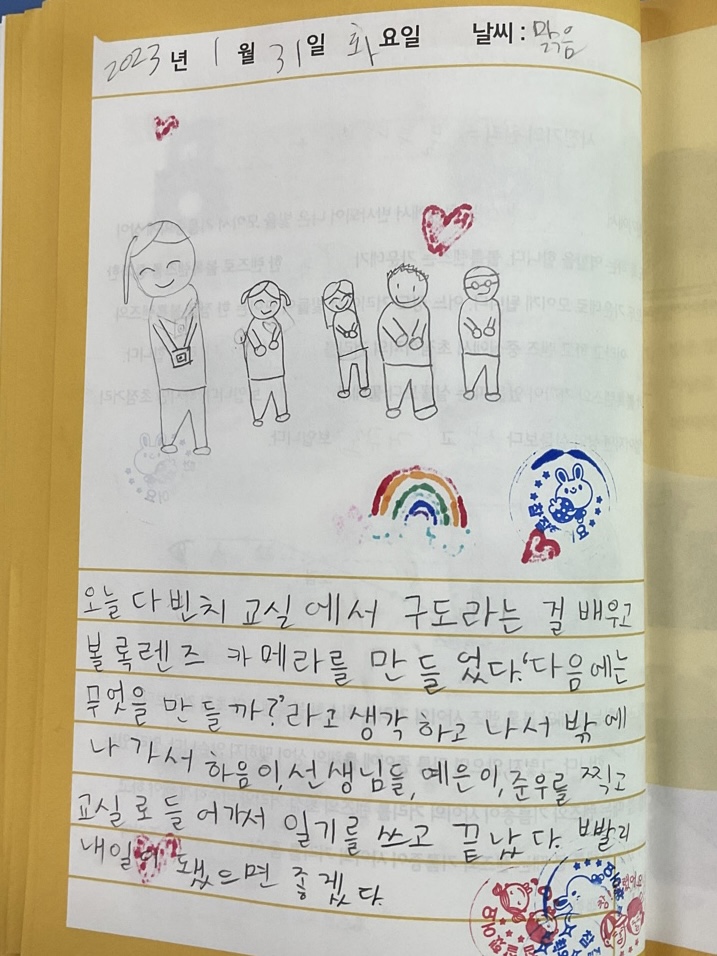 2023년 1월 31일 화요일 날씨: 맑음
오늘 다빈치 교실에서 구도라는 걸 배우고
볼록렌즈 카메라를 만들었다. '다음에는
무엇을 만들까?'라고 생각하고 나서 밖에
나가서 하음이, 선생님들, 예은이, 준우를 찍고
교실로 들어가서 일기를 쓰고 끝났다. 빠빨리
내일이 됐으면 좋겠다.